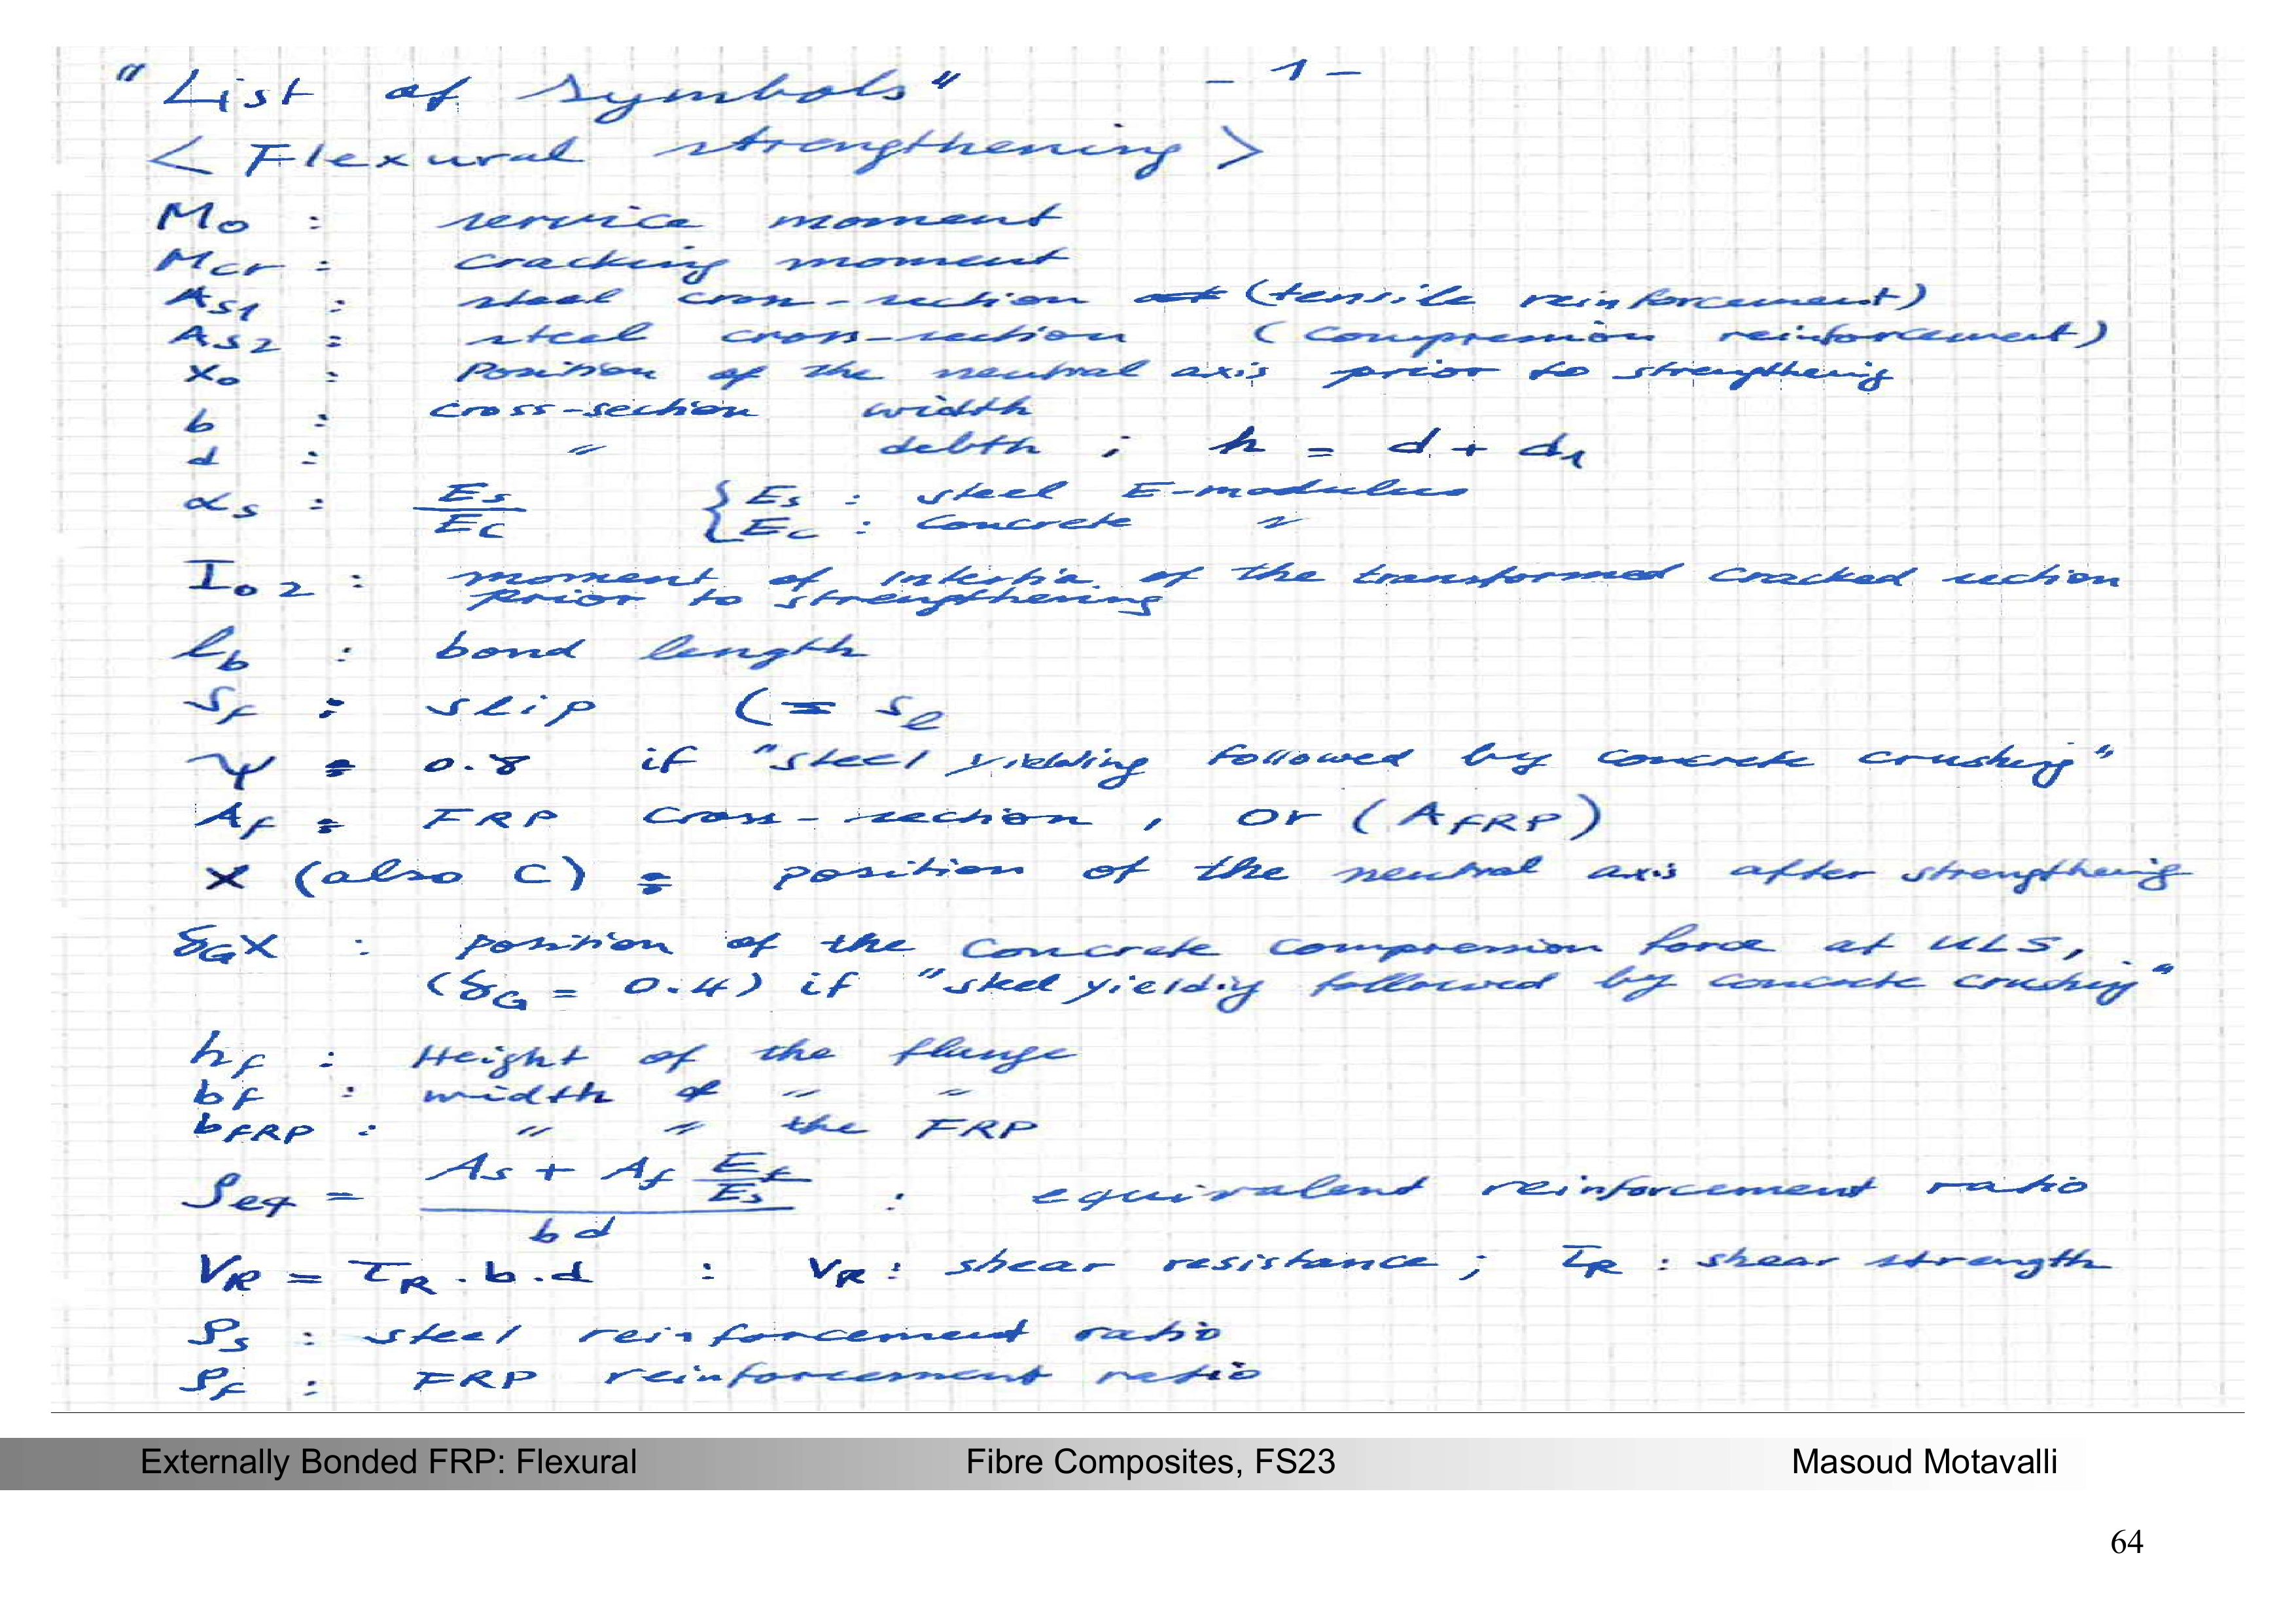 "List of Symbols" - 1 -
< Flexural strengthening >
Mo : service moment
Mcr : cracking moment
As1 : steel cross-section (tensile reinforcement)
As2 : steel cross-section (compression reinforcement)
xo : Position of the neutral axis prior to strengthenig
b : cross-section width
d : " debth ; h = d + d1
αs : Es/Ec { Es : steel E-modulus
{ Ec : concrete "
Io2 : moment of intertia of the transformed cracked section
prior to strengthering
lb : bond length
sf : slip (= sl
ψ = 0.8 if "steel yielding followed by concrete crushing"
Af : FRP cross-section, or (AFRP)
x (also c) : position of the neutral axis after strengthenig
δGx : position of the concrete compression force at ULS,
(δG = 0.4) if "steel yieldig followed by concrete crushing"
hf : Height of the flange
bf : width of " "
bFRP : " " the FRP
ρeq = (As + Af Ef/Es) / bd : equivalent reinforcement ratio
VR = τR . b . d : VR : shear resistance ; τR : shear strength
ρs : steel reinforcement ratio
ρf : FRP reinforcement ratio
Externally Bonded FRP: Flexural Fibre Composites, FS23 Masoud Motavalli
64